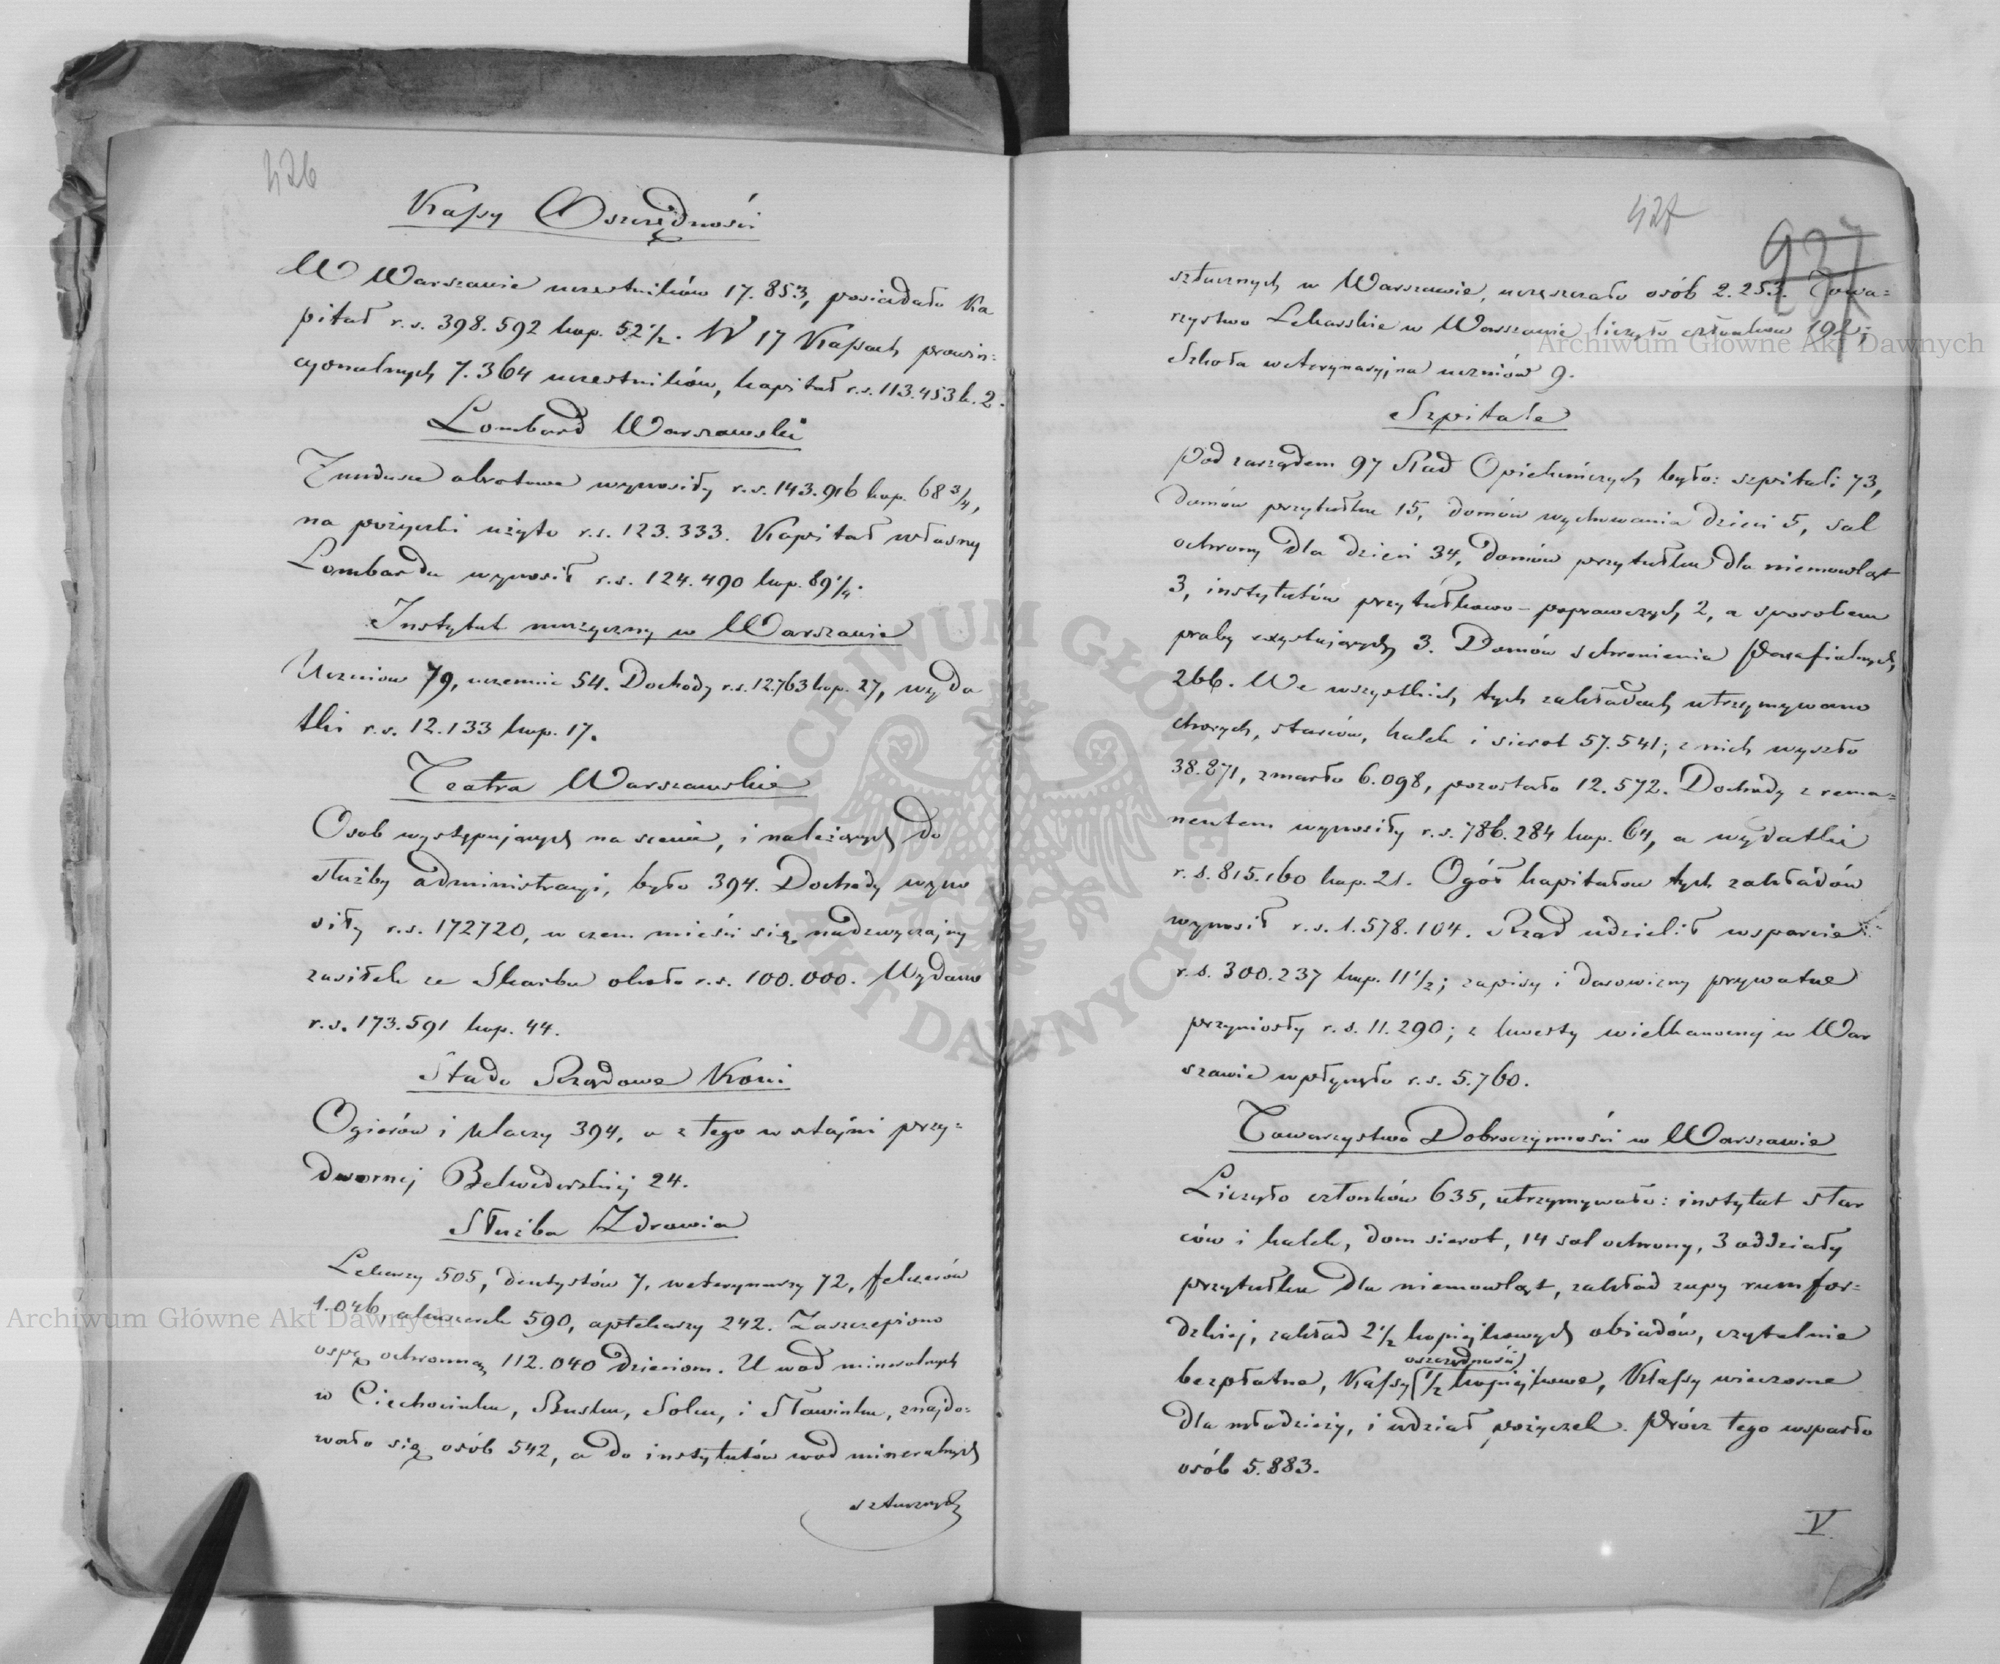 426
Kassy Oszczędności
W Warszawie uczestników 17.853, posiadało Ka
pitał r.s. 398.592 kop. 52 1/2. W 17 Kassach prowin=
cyonalnych 7.364 uczestników, kapitał r.s. 113.453 k. 2.
Lombard Warszawski
Fundusze obrotowe wynosiły r.s. 143.916 kop. 68 3/4,
na pożyczki użyto r.s. 123.333. Kapitał własny
Lombardu wynosił r.s. 124.490 kop. 89 1/4.
Instytut muzyczny w Warszawie
Uczniow 79, uczennic 54. Dochody r.s. 12.763 kop. 27, wyda
tki r.s. 12.133 kop. 17.
Teatra Warszawskie
Osob występujących na scenie, i należących do
służby administracyi, było 394. Dochody wyno
siły r.s. 172720, w czem mieści się nadzwyczajny
zasiłek ze Skarbu około r.s. 100.000. Wydano
r.s. 173.591 kop. 44.
Stado Rządowe Koni
Ogierów i klaczy 394, a z tego w stajni przy=
dwornej Belwederskiej 24.
Służba Zdrowia
Lekarzy 505, dentystów 7, weterynarzy 72, felczerów
1.046, akuszerek 590, aptekarzy 242. Zaszczepiono
ospę ochronną 112.040 dzieciom. U wod mineralnych
w Ciechocinku, Busku, Solcu, i Sławinku, znajdo=
wało się osób 542, a do instytutów wod mineralnych
sztucznych
427
937
sztucznych w Warszawie, uczęszczało osób 2.253. Towa=
rzystwo Lekarskie w Warszawie liczyło członkow 192;
Szkoła weterynaryjna uczniów 9.
Szpitale
Pod zarządem 97 Rad Opiekuńczych było: szpitali 73,
domów przytułku 15, domów wychowania dzieci 5, sal
ochrony dla dzieci 34, domów przytułku dla niemowląt
3, instytutów przytułkowo-poprawczych 2, a sposobem
próby exystujących 3. Domów schronienia Parafialnych
266. We wszystkich tych zakładach utrzymywano
chorych, starców, kalek i sierot 57.541; z nich wyszło
38.871, zmarło 6.098, pozostało 12.572. Dochody z rema=
nentem wynosiły r.s. 786.284 kop. 64, a wydatki
r.s. 815.160 kop. 21. Ogół kapitałow tych zakładów
wynosił r.s. 1.578.104. Rząd udzielił wsparcie
r.s. 300.237 kop. 11 1/2; zapisy i darowizny prywatne
przyniosły r.s. 11.290; z kwesty wielkanocnej w War
szawie wpłynęło r.s. 5.760.
Towarzystwo Dobroczynności w Warszawie
Liczyło członków 635, utrzymywało: instytut star
ców i kalek, dom sierot, 14 sal ochrony, 3 oddziały
przytułku dla niemowląt, zakład zupy rumfor=
dzkiej, zakład 2 1/2 kopiejkowych obiadów, czytelnie
oszczędności
bezpłatne, Kassy 1/2 kopiejkowe, Klassy wieczorne
dla młodzieży, i udział pożyczek. Prócz tego wsparło
osób 5.883.
V.
Archiwum Główne Akt Dawnych
Archiwum Główne Akt Dawnych
ARCHIWUM GŁÓWNE AKT DAWNYCH